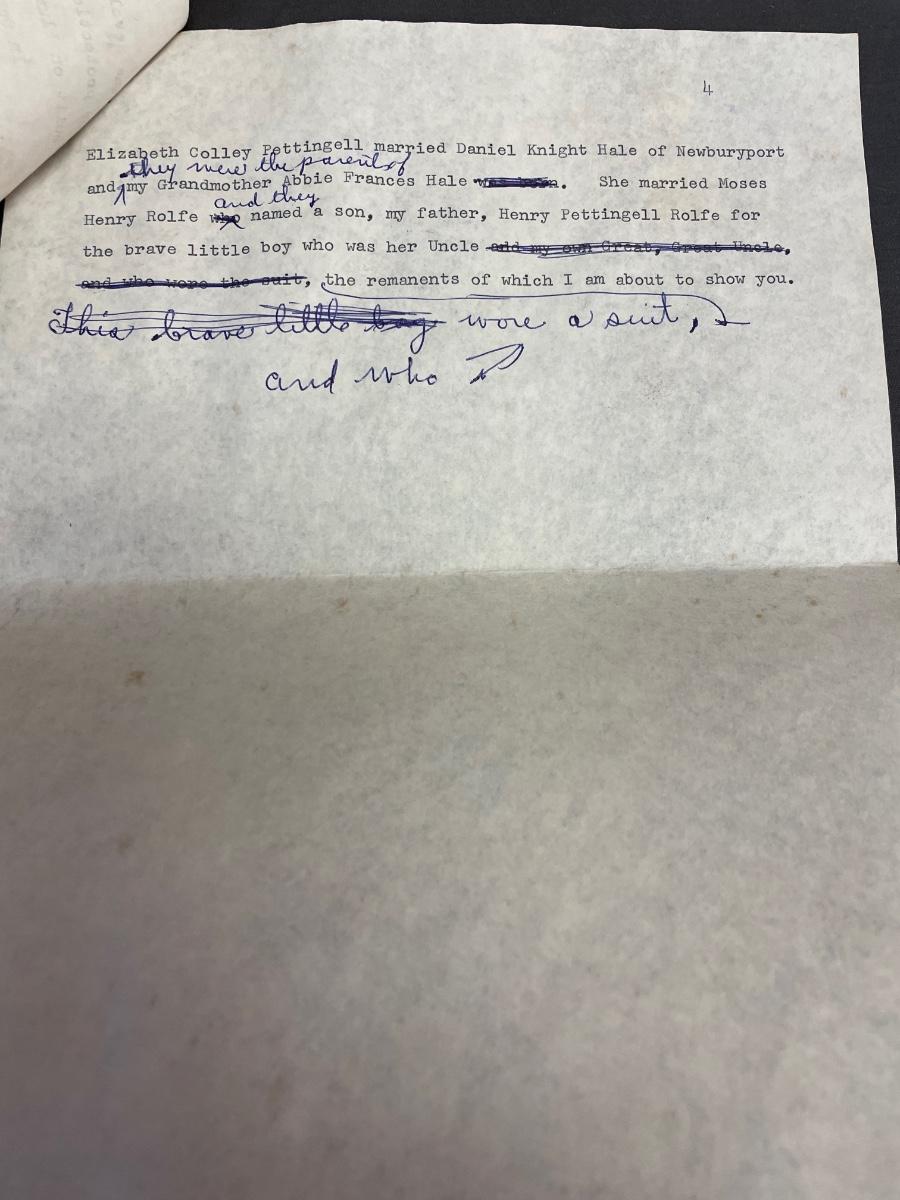 4
Elizabeth Colley Pettingell married Daniel Knight Hale of Newburyport
they were the parents of
and my Grandmother Abbie Frances Hale was born. She married Moses
and they
Henry Rolfe who named a son, my father, Henry Pettingell Rolfe for
the brave little boy who was her Uncle add my own Great, Great Uncle,
and who wore the suit, the remanents of which I am about to show you.
This brave little boy wore a suit,
and who